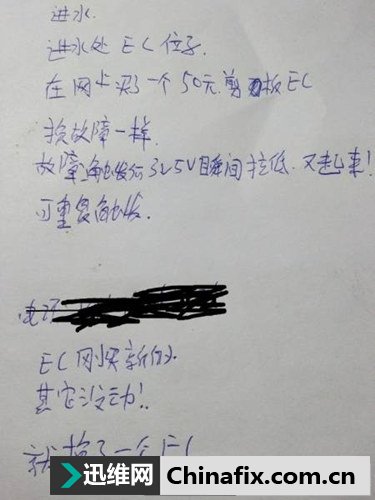 进水.
进水处 EC 位子.
在网上买了一个50元. 剪板EC
换故障一样.
故障触发后3V5V瞬间拉低. 又起来!
可重复触发.
EC刚买新的.
其它没动!.
就换了一个EC
迅维网 Chinafix.com.cn